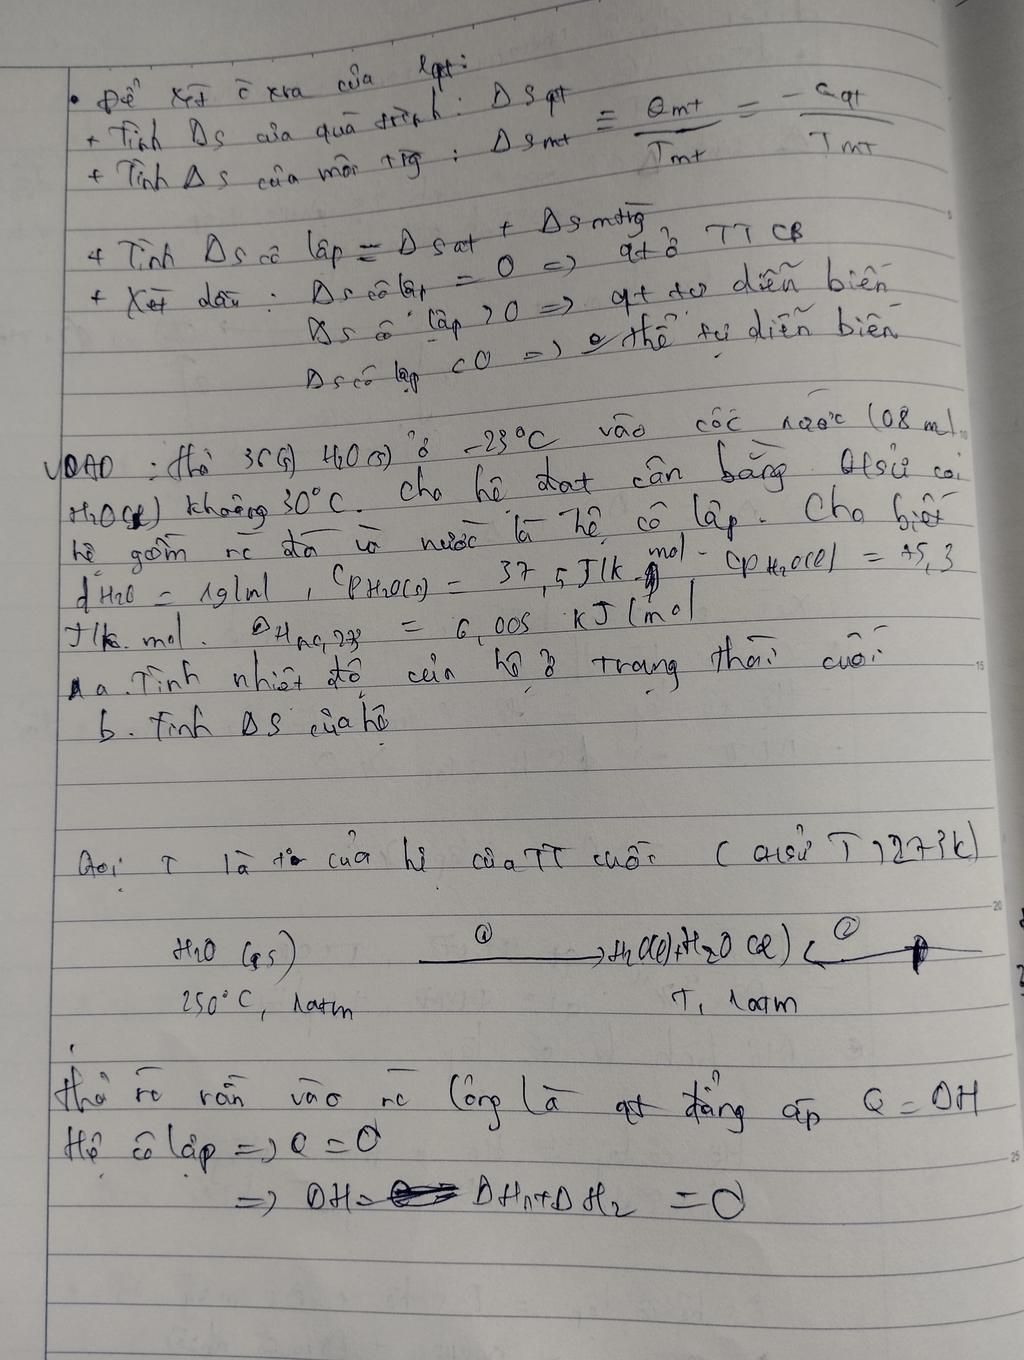 • Để xét c̄ xra của 1qt:
+ Tính Δs của quá trình: Δs qt
+ Tính Δs của môi trg : Δs mt = Qmt / Tmt = - Qqt / Tmt
+ Tính Δs cô lập = Δs qt + Δs mtrg
+ Xét dấu : Δs cô lập = 0 => qt ở TT CB
Δs cô lập > 0 => qt tự diễn biến
Δs cô lập < 0 => thể tự diễn biến
: thả 36(g) H2O(s) ở -23°C vào cốc nước 108 ml
H2O(l) khoảng 30°C. Cho hệ đạt cân bằng Gisử coi
hệ gồm nc đá và nước là hệ cô lập. Cho biết
d H2O = 1g/ml , Cp H2O(s) = 37,5 J/k mol - Cp H2O(l) = 75,3
J/k. mol. = 6,005 kJ/mol
a. Tính nhiệt độ của hệ ở trạng thái cuối
b. Tính ΔS của hệ
Gọi T là to của hệ của TT cuối ( Gisử T > 273k)
H2O (s) ① H2O(l) + H2O (l) ②
250°C, 1atm T, 1atm
Thả nc rắn vào nc lỏng là qt đẳng áp Q = ΔH
Hệ cô lập => Q = 0
=> ΔH = ΔH1 + ΔH2 = 0